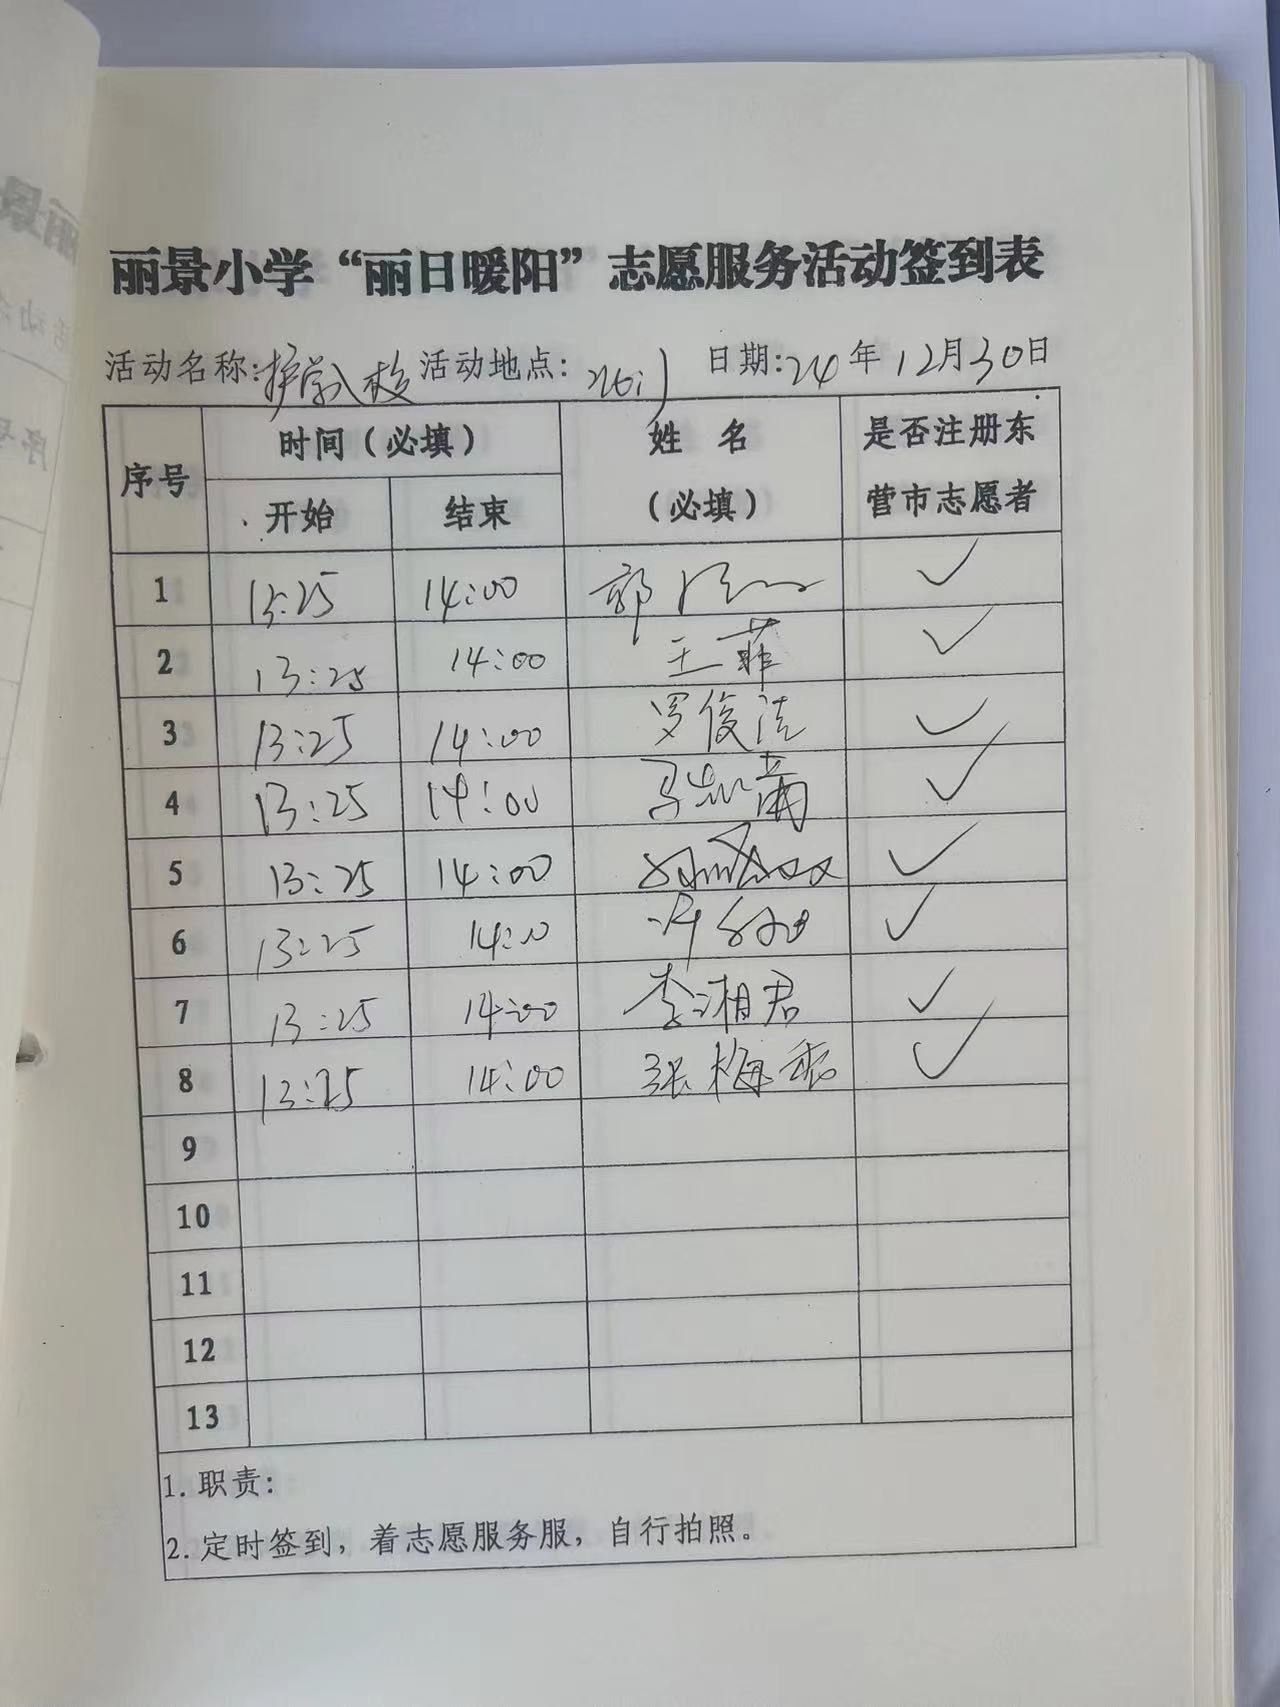 丽景小学“丽日暖阳”志愿服务活动签到表
活动名称:护学入校 活动地点: 日期:24年12月30日
序号 时间(必填) 姓名(必填) 是否注册东营市志愿者
开始 结束
1 13:25 14:00 郭 ✓
2 13:25 14:00 王菲 ✓
3 13:25 14:00 罗俊洁 ✓
4 13:25 14:00 马 ✓
5 13:25 14:00 ✓
6 13:25 14:00 许 ✓
7 13:25 14:00 李湘君 ✓
8 13:25 14:00 张梅香 ✓
9
10
11
12
13
1. 职责:
2. 定时签到，着志愿服务服，自行拍照。